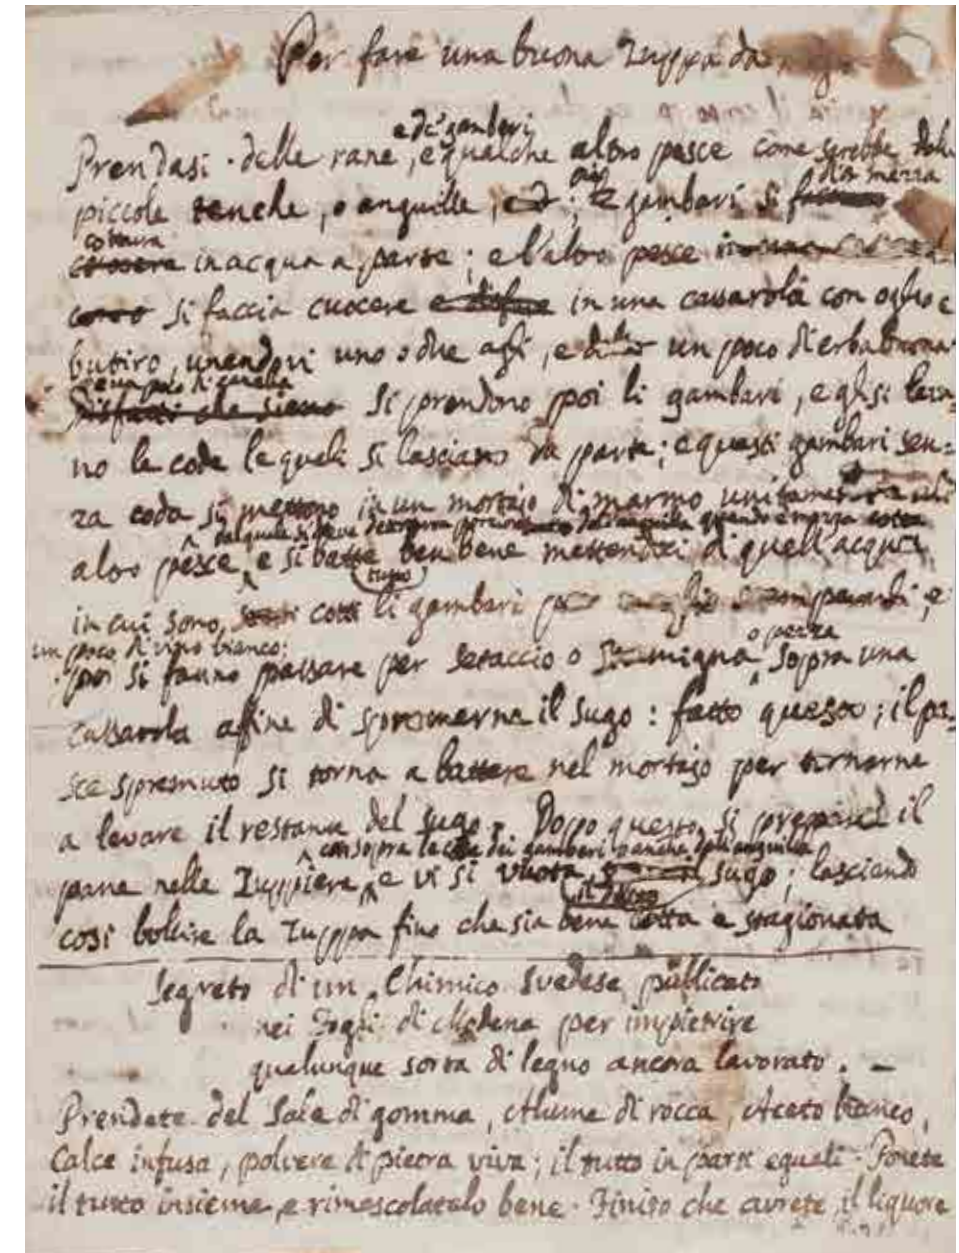 Per fare una buona Zuppa da
e di gambari
Prendasi delle rane, e qualche altro pesce come sarebbe delle
poi dar mezza
piccole tenche, o anguille, i gambari si
cottura
cuocere in acqua a parte; e l'altro pesce in una
si faccia cuocere e disfare in una cassarola con oglio e
butiro, unendovi uno o due agli, e un poco di erbabuona
e un poco di canella
disfatti che sieno si prendono poi li gambari, e gli si leva-
no le code le quali si lasciano da parte; e questi gambari sen=
za coda si mettono in un mortajo di marmo unitamente all'
dal quale si deve dell'anguilla quando è mezza cotta
altro pesce, e si batte ben bene mettendoci di quell'acqua
tutto
in cui sono cotti li gambari e
un poco di vino bianco;
o pezza
poi si fanno passare per setaccio o stamigna, sopra una
cassarola affine di spremerne il sugo: fatto questo; il pe-
sce spremuto si torna a battere nel mortajo per tornarne
a levare il restante del sugo. Dopo questo si prepari il
con sopra le code dei gambari, anche dell'anguilla
pane nelle Zuppiere, e vi si vuota sugo; lasciando
il detto
così bollire la Zuppa fino che sia bene cotta e stagionata
Segreto di un Chimico Svedese publicato
nei Fogli di Modena per impietrire
qualunque sorta di legno ancora lavorato. -
Prendete del Sale di gomma, Alume di rocca, Aceto bianco,
Calce infusa, polvere di pietra viva; il tutto in parti eguali. Ponete
il tutto insieme, e rimescolatelo bene. Finito che avrete, il liquore